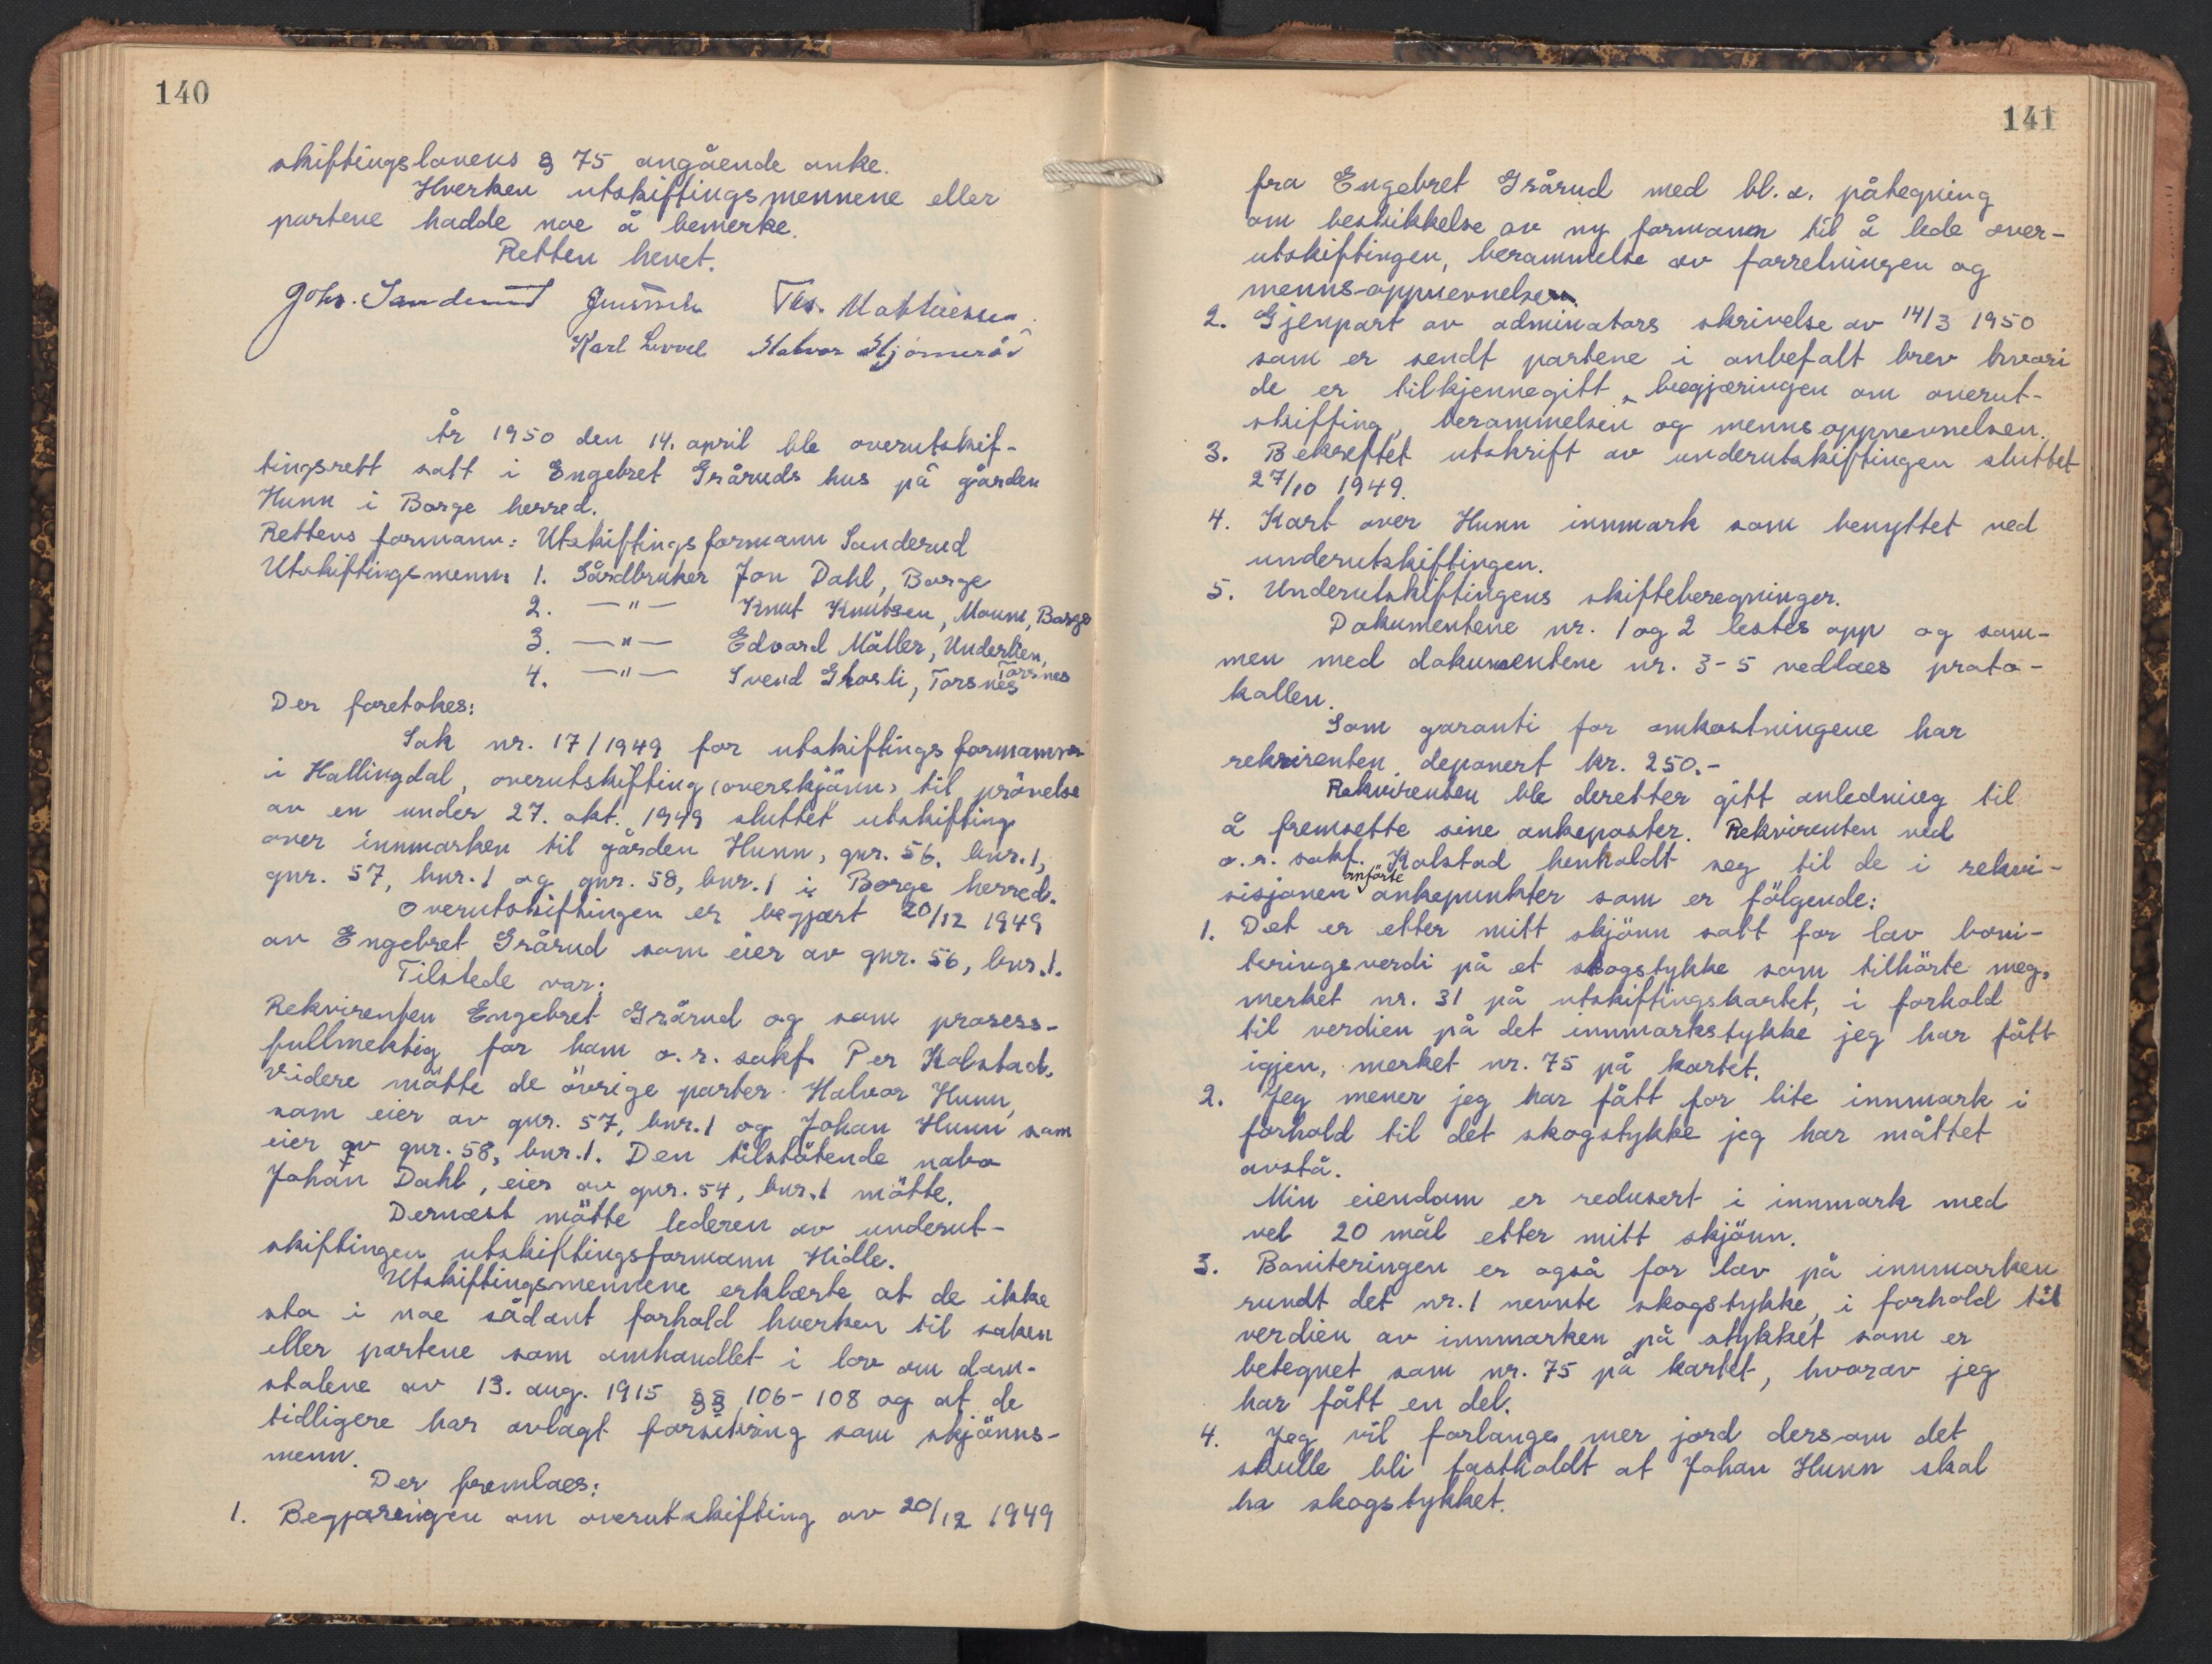 140
skiftingslovens § 75 angående anke.
Hverken utskiftingsmennene eller
partene hadde noe å bemerke.
Retten hevet.
Johs. Sanderud Ths. Mathiesen
Karl Halvor
År 1950 den 14. april ble overutskif-
tingsrett satt i Engebret Gråruds hus på gården
Hunn i Borge herred.
Rettens formann: Utskiftingsformann Sanderud
Utskiftingsmenn: 1. Gårdbruker Jon Dahl, Borge
2. —"— Knut Knutsen, Moum, Borge
3. —"— Edvard Møller, Underlien,
Torsnes
4. —"— Svend Grosli, Torsnes
Der foretokes:
Sak nr. 17/1949 for utskiftingsformannen
i Hallingdal, overutskifting (overskjönn) til prövelse
av en under 27. okt. 1949 sluttet utskifting
over innmarken til gården Hunn, gnr. 56, bnr. 1,
gnr. 57, bnr. 1 og gnr. 58, bnr. 1 i Borge herred.
Overutskiftingen er begjært 20/12 1949
av Engebret Grårud som eier av gnr. 56, bnr. 1.
Tilstede var:
Rekvirenten Engebret Grårud og som prosess-
fullmektig for ham o.r. sakf. Per Kolstad.
Videre mötte de övrige parter Halvor Hunn,
som eier av gnr. 57, bnr. 1 og Johan Hunn som
eier av gnr. 58, bnr. 1. Den tilstötende nabo
Johan Dahl, eier av gnr. 54, bnr. 1 mötte.
Dernæst mötte lederen av underut-
skiftingen utskiftingsformann Hidle.
Utskiftingsmennene erklærte at de ikke
sto i noe sådant forhold hverken til saken
eller partene som omhandlet i lov om dom-
stolene av 13. aug. 1915 §§ 106-108 og at de
tidligere har avlagt forsikring som skjönns-
menn.
Der fremlaes:
1. Begjæringen om overutskifting av 20/12 1949
141
fra Engebret Grårud med bl.a. påtegning
om beskikkelse av ny formann til å lede over-
utskiftingen, berammelse av forretningen og
menns-oppnevnelsen.
2. Gjenpart av adminators skrivelse av 14/3 1950
som er sendt partene i anbefalt brev hvori
de er tilkjennegitt begjæringen om overut-
skifting, berammelsen og mennsoppnevnelsen.
3. Bekreftet utskrift av underutskiftingen sluttet
27/10 1949.
4. Kart over Hunn innmark som benyttet ved
underutskiftingen.
5. Underutskiftingens skifteberegninger.
Dokumentene nr. 1 og 2 lestes opp og sam-
men med dokumentene nr. 3-5 vedlaes proto-
kollen.
Som garanti for omkostningene har
rekvirenten deponert kr. 250.-
Rekvirenten ble deretter gitt anledning til
å fremsette sine ankeposter. Rekvirenten ved
o.r. sakf. Kolstad henholdt seg til de i rekvi-
sisjonen anförte ankepunkter som er fölgende:
1. Det er etter mitt skjönn satt for lav boni-
teringsverdi på et skogstykke som tilhörte meg,
merket nr. 31 på utskiftingskartet, i forhold
til verdien på det innmarkstykke jeg har fått
igjen, merket nr. 75 på kartet.
2. Jeg mener jeg har fått for lite innmark i
forhold til det skogstykke jeg har måttet
avstå.
Min eiendom er redusert i innmark med
vel 20 mål etter mitt skjönn.
3. Boniteringen er også for lav på innmarken
rundt det nr. 1 nevnte skogstykke, i forhold til
verdien av innmarken på stykket som er
betegnet som nr. 75 på kartet, hvorav jeg
har fått en del.
4. Jeg vil forlange mer jord dersom det
skulle bli fastholdt at Johan Hunn skal
ha skogstykket.